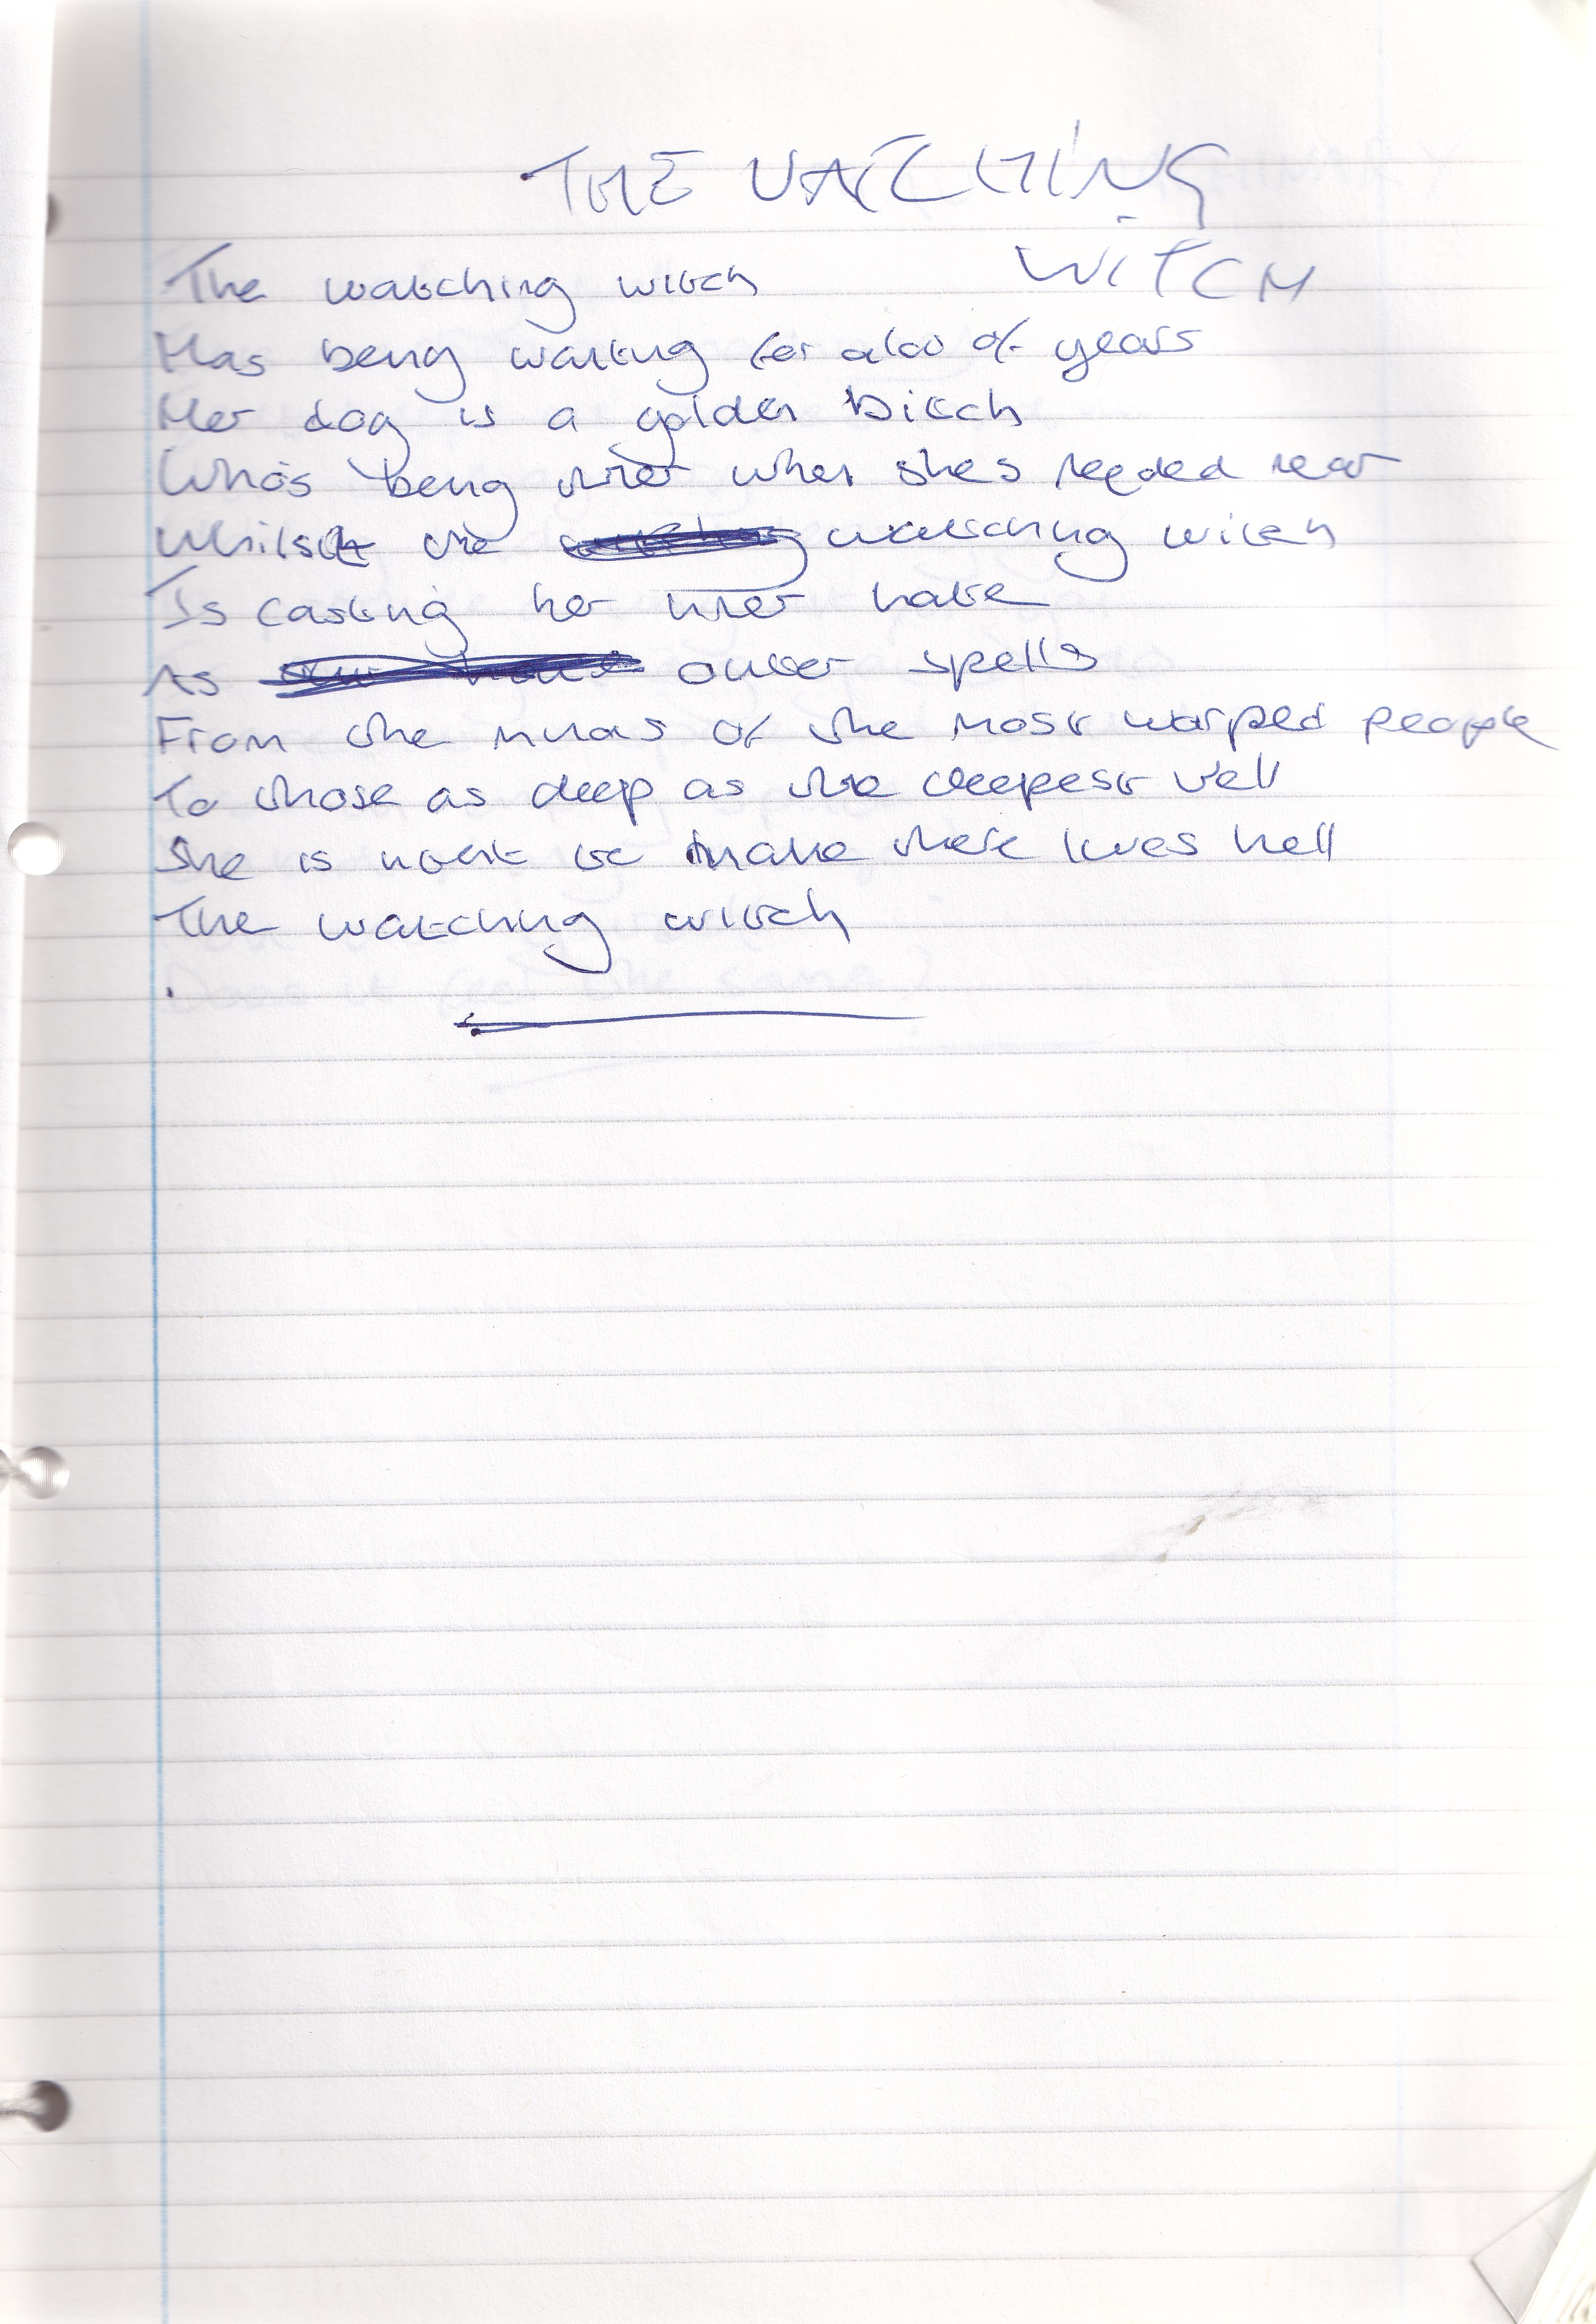 THE WATCHING
WITCH
The watching witch
Has being waiting for alot of years
Her dog is a golden bitch
Who's being there when she's needed near
Whilst the watching witch
Is casting her inner hate
As outer spells
From the minds of the most warped people
To those as deep as the deepest well
She is out to make there lives hell
The watching witch